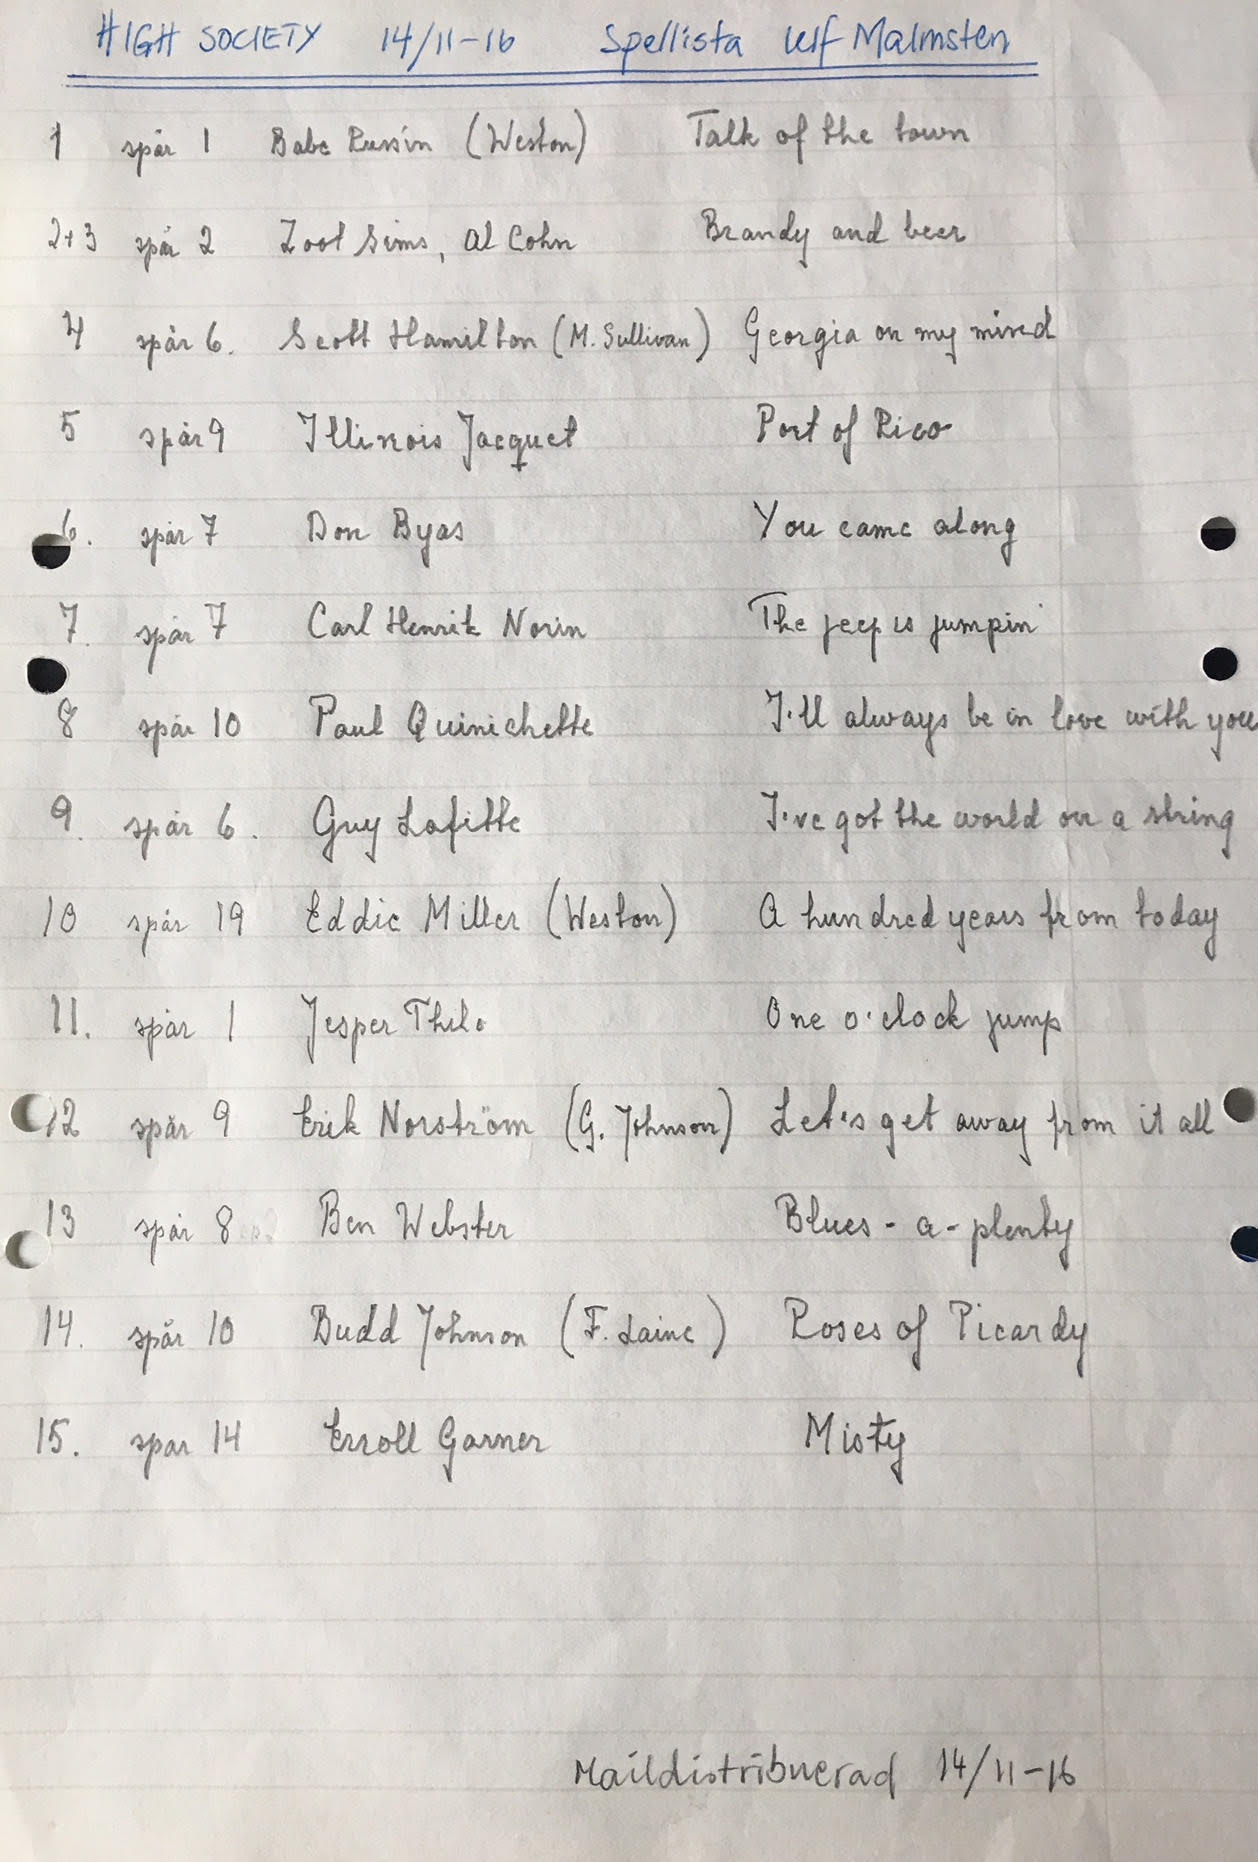 HIGH SOCIETY 14/11-16 Spellista Ulf Malmsten
1 spår 1 Babe Russin (Weston) Talk of the town
2+3 spår 2 Zoot Sims, Al Cohn Brandy and beer
4 spår 6. Scott Hamilton (M. Sullivan) Georgia on my mind
5 spår 9 Illinois Jacquet Port of Rico
6. spår 7 Don Byas You came along
7. spår 7 Carl Henrik Norin The jeep is jumpin'
8 spår 10 Paul Quinichette I'll always be in love with you
9. spår 6. Guy Lafitte I've got the world on a string
10 spår 19 Eddie Miller (Weston) A hundred years from today
11. spår 1 Jesper Thilo One o'clock jump
12 spår 9 Erik Norström (G. Johnson) Let's get away from it all
13 spår 8 Ben Webster Blues-a-plenty
14. spår 10 Budd Johnson (F. Laine) Roses of Picardy
15. spår 14 Erroll Garner Misty
Maildistribuerad 14/11-16